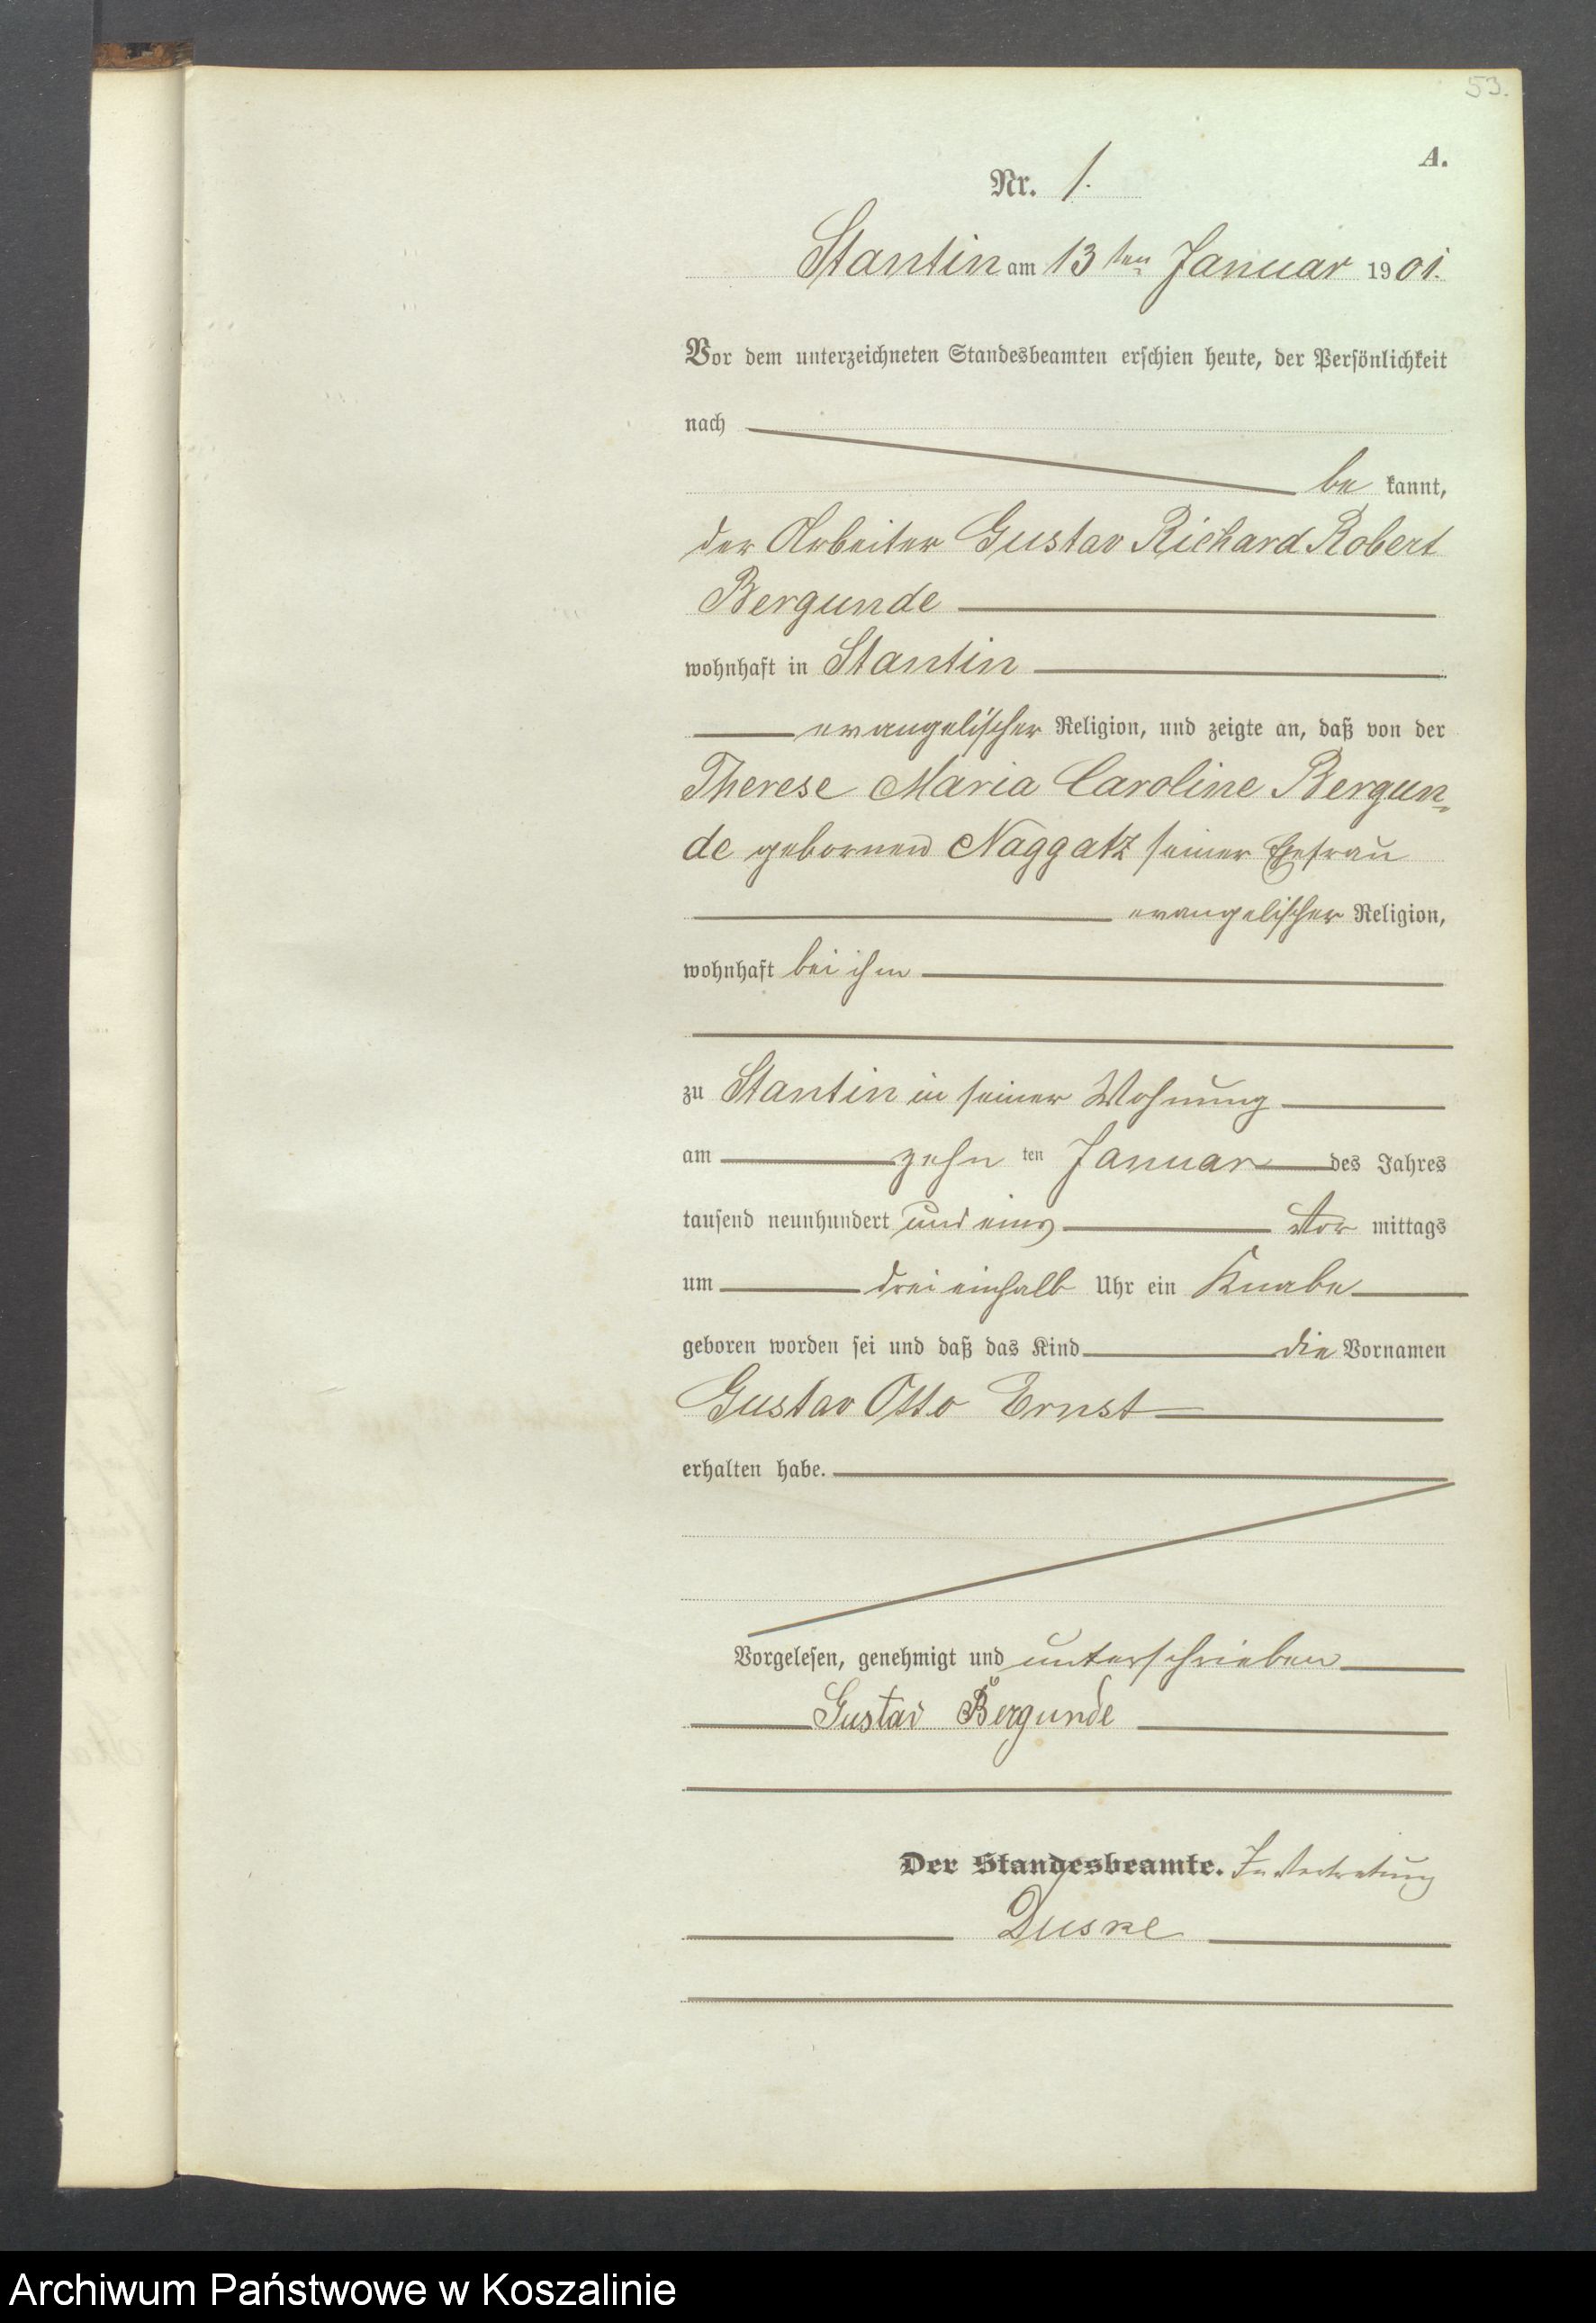 53.
A.
Nr. 1.
Stantin am 13ten Januar 1901.
Vor dem unterzeichneten Standesbeamten erschien heute, der Persönlichkeit
nach
be kannt,
der Arbeiter Gustav Richard Robert
Bergunde
wohnhaft in Stantin
evangelischer Religion, und zeigte an, daß von der
Therese Maria Caroline Bergun-
de gebornen Naggatz seiner Ehefrau
evangelischer Religion,
wohnhaft bei ihm
zu Stantin in seiner Wohnung
am zehn ten Januar des Jahres
tausend neunhundert und eins Vor mittags
um drei einhalb Uhr ein Knabe
geboren worden sei und daß das Kind die Vornamen
Gustav Otto Ernst
erhalten habe.
Vorgelesen, genehmigt und unterschrieben
Gustav Bergunde
Der Standesbeamte. In Vertretung
Duske
Archiwum Państwowe w Koszalinie